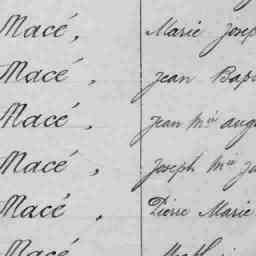 Macé, Marie Josep
Macé, Jean Bap
Macé, Jean Mie aug
Macé, Joseph Mie
Macé, Pierre Marie
Macé Math